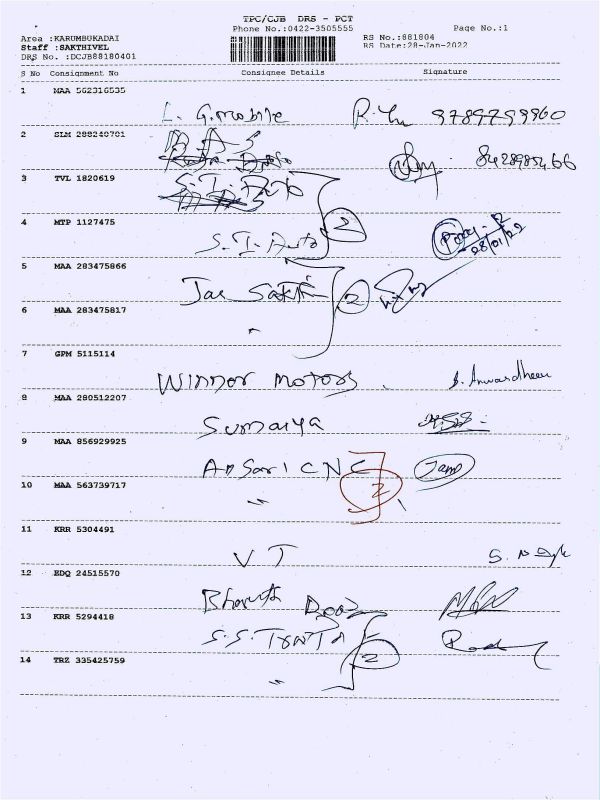 TPC/CJB DRS - PCT
Phone No.:0422-3505555
Page No.:1
Area :KARUMBUKADAI
RS No.:881804
Staff :SAKTHIVEL
RS Date:28-Jan-2022
DRS No. :DCJB88180401
S No Consignment No Consignee Details Signature
1 MAA 562316535
L. G.mobile 9789799960
2 SLM 288240701
8428985466
3 TVL 1820619
S.T. Auto
4 MTP 1127475
S.T. Auto 2
28/01/22
5 MAA 283475866
Jai Sakthi 2
6 MAA 283475817
"
7 GPM 5115114
Winner motors
8 MAA 280512207
Sumaiya
9 MAA 856929925
Ansari CNC
10 MAA 563739717
" 2
11 KRR 5304491
VT
12 EDQ 24515570
Bharath
13 KRR 5294418
S.S.
14 TRZ 335425759
" 2